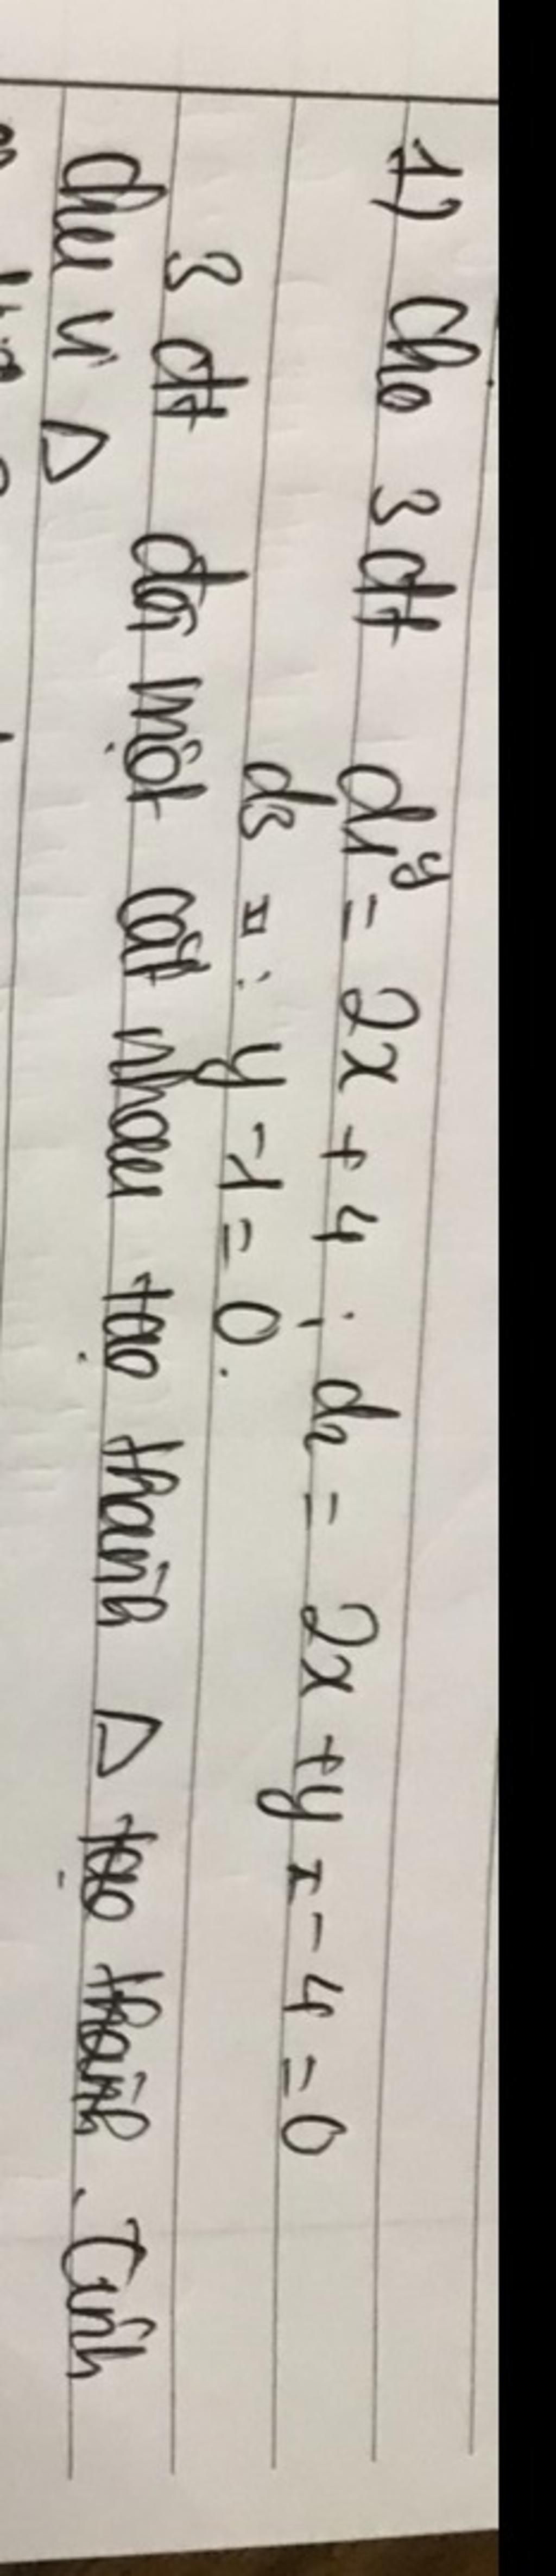 1) Cho 3 đt d1 y = 2x + 4 ; d2 = 2x + y - 4 = 0
d3 : y - 1 = 0.
3 đt đôi một cắt nhau tạo thành Δ tạo thành. Tính
chu vi Δ